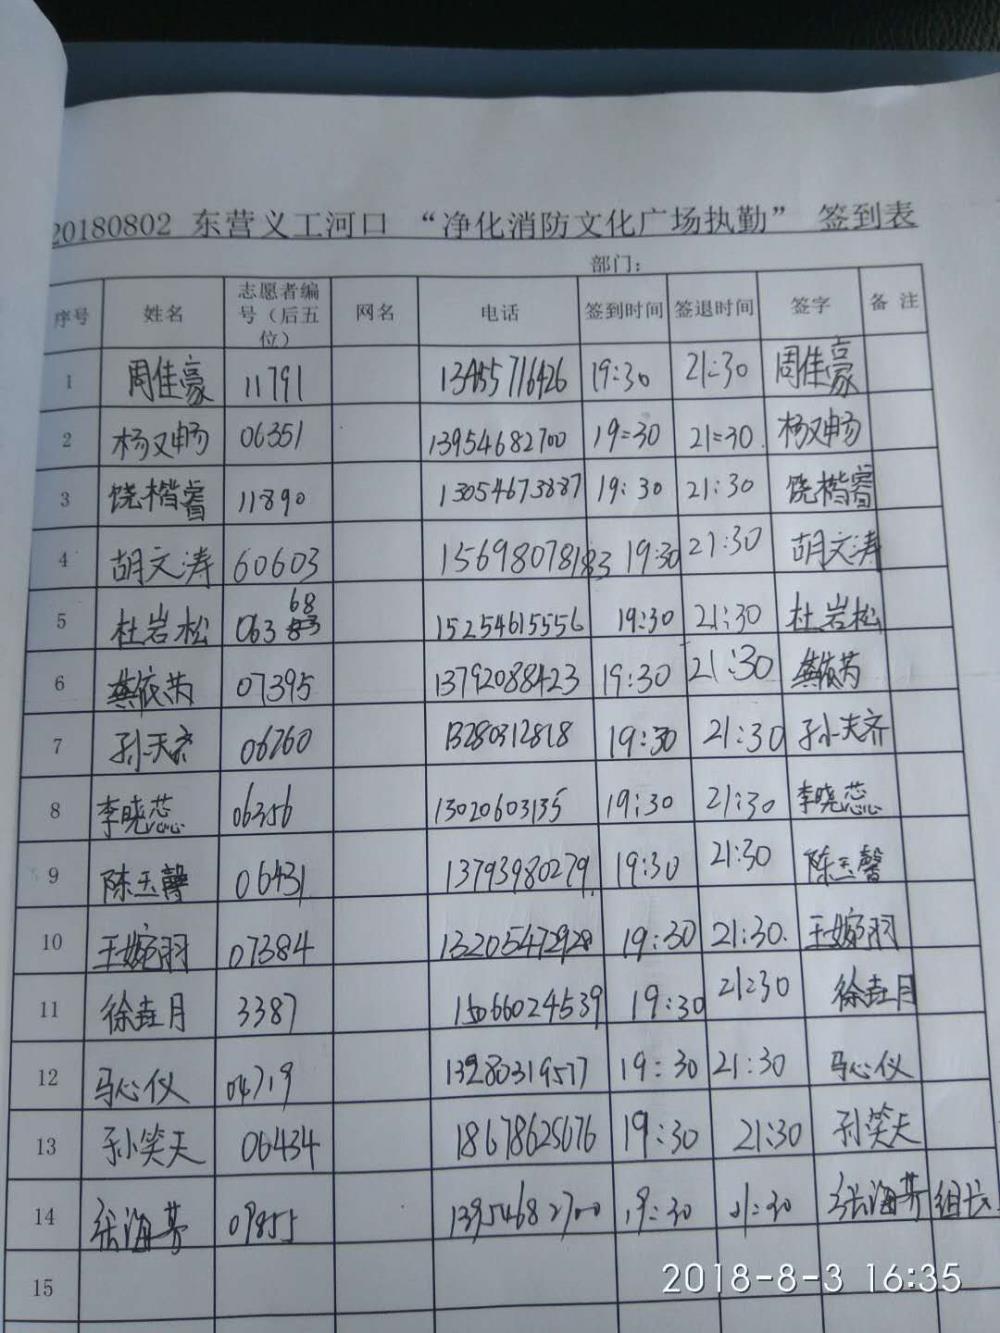 20180802 东营义工河口 “净化消防文化广场执勤” 签到表
部门：
序号 姓名 志愿者编号（后五位） 网名 电话 签到时间 签退时间 签字 备注
1 周佳豪 11791 13455716426 19:30 21:30 周佳豪
2 杨又畅 06351 13954682700 19:30 21:30. 杨又畅
3 饶楷睿 11890 13054673887 19:30 21:30 饶楷睿
4 胡文涛 60603 19:30 21:30 胡文涛
5 杜岩松 06368 15254615556 19:30 21:30 杜岩松
6 07395 13792088423 19:30 21:30
7 孙天齐 06260 13280312818 19:30 21:30 孙天齐
8 李晓蕊 06356 13020603135 19:30 21:30 李晓蕊
9 陈玉馨 06431 13793980279 19:30 21:30 陈玉馨
10 王婉羽 07384 13205472928 19:30 21:30. 王婉羽
11 徐垚月 3387 15066024539 19:30 21:30 徐垚月
12 马心仪 04719 13280319577 19:30 21:30 马心仪
13 孙笑天 06434 18678625676 19:30 21:30 孙笑天
14 张海芳 09855 13954682700 19:30 21:30 张海芳 组长
15
2018-8-3 16:35